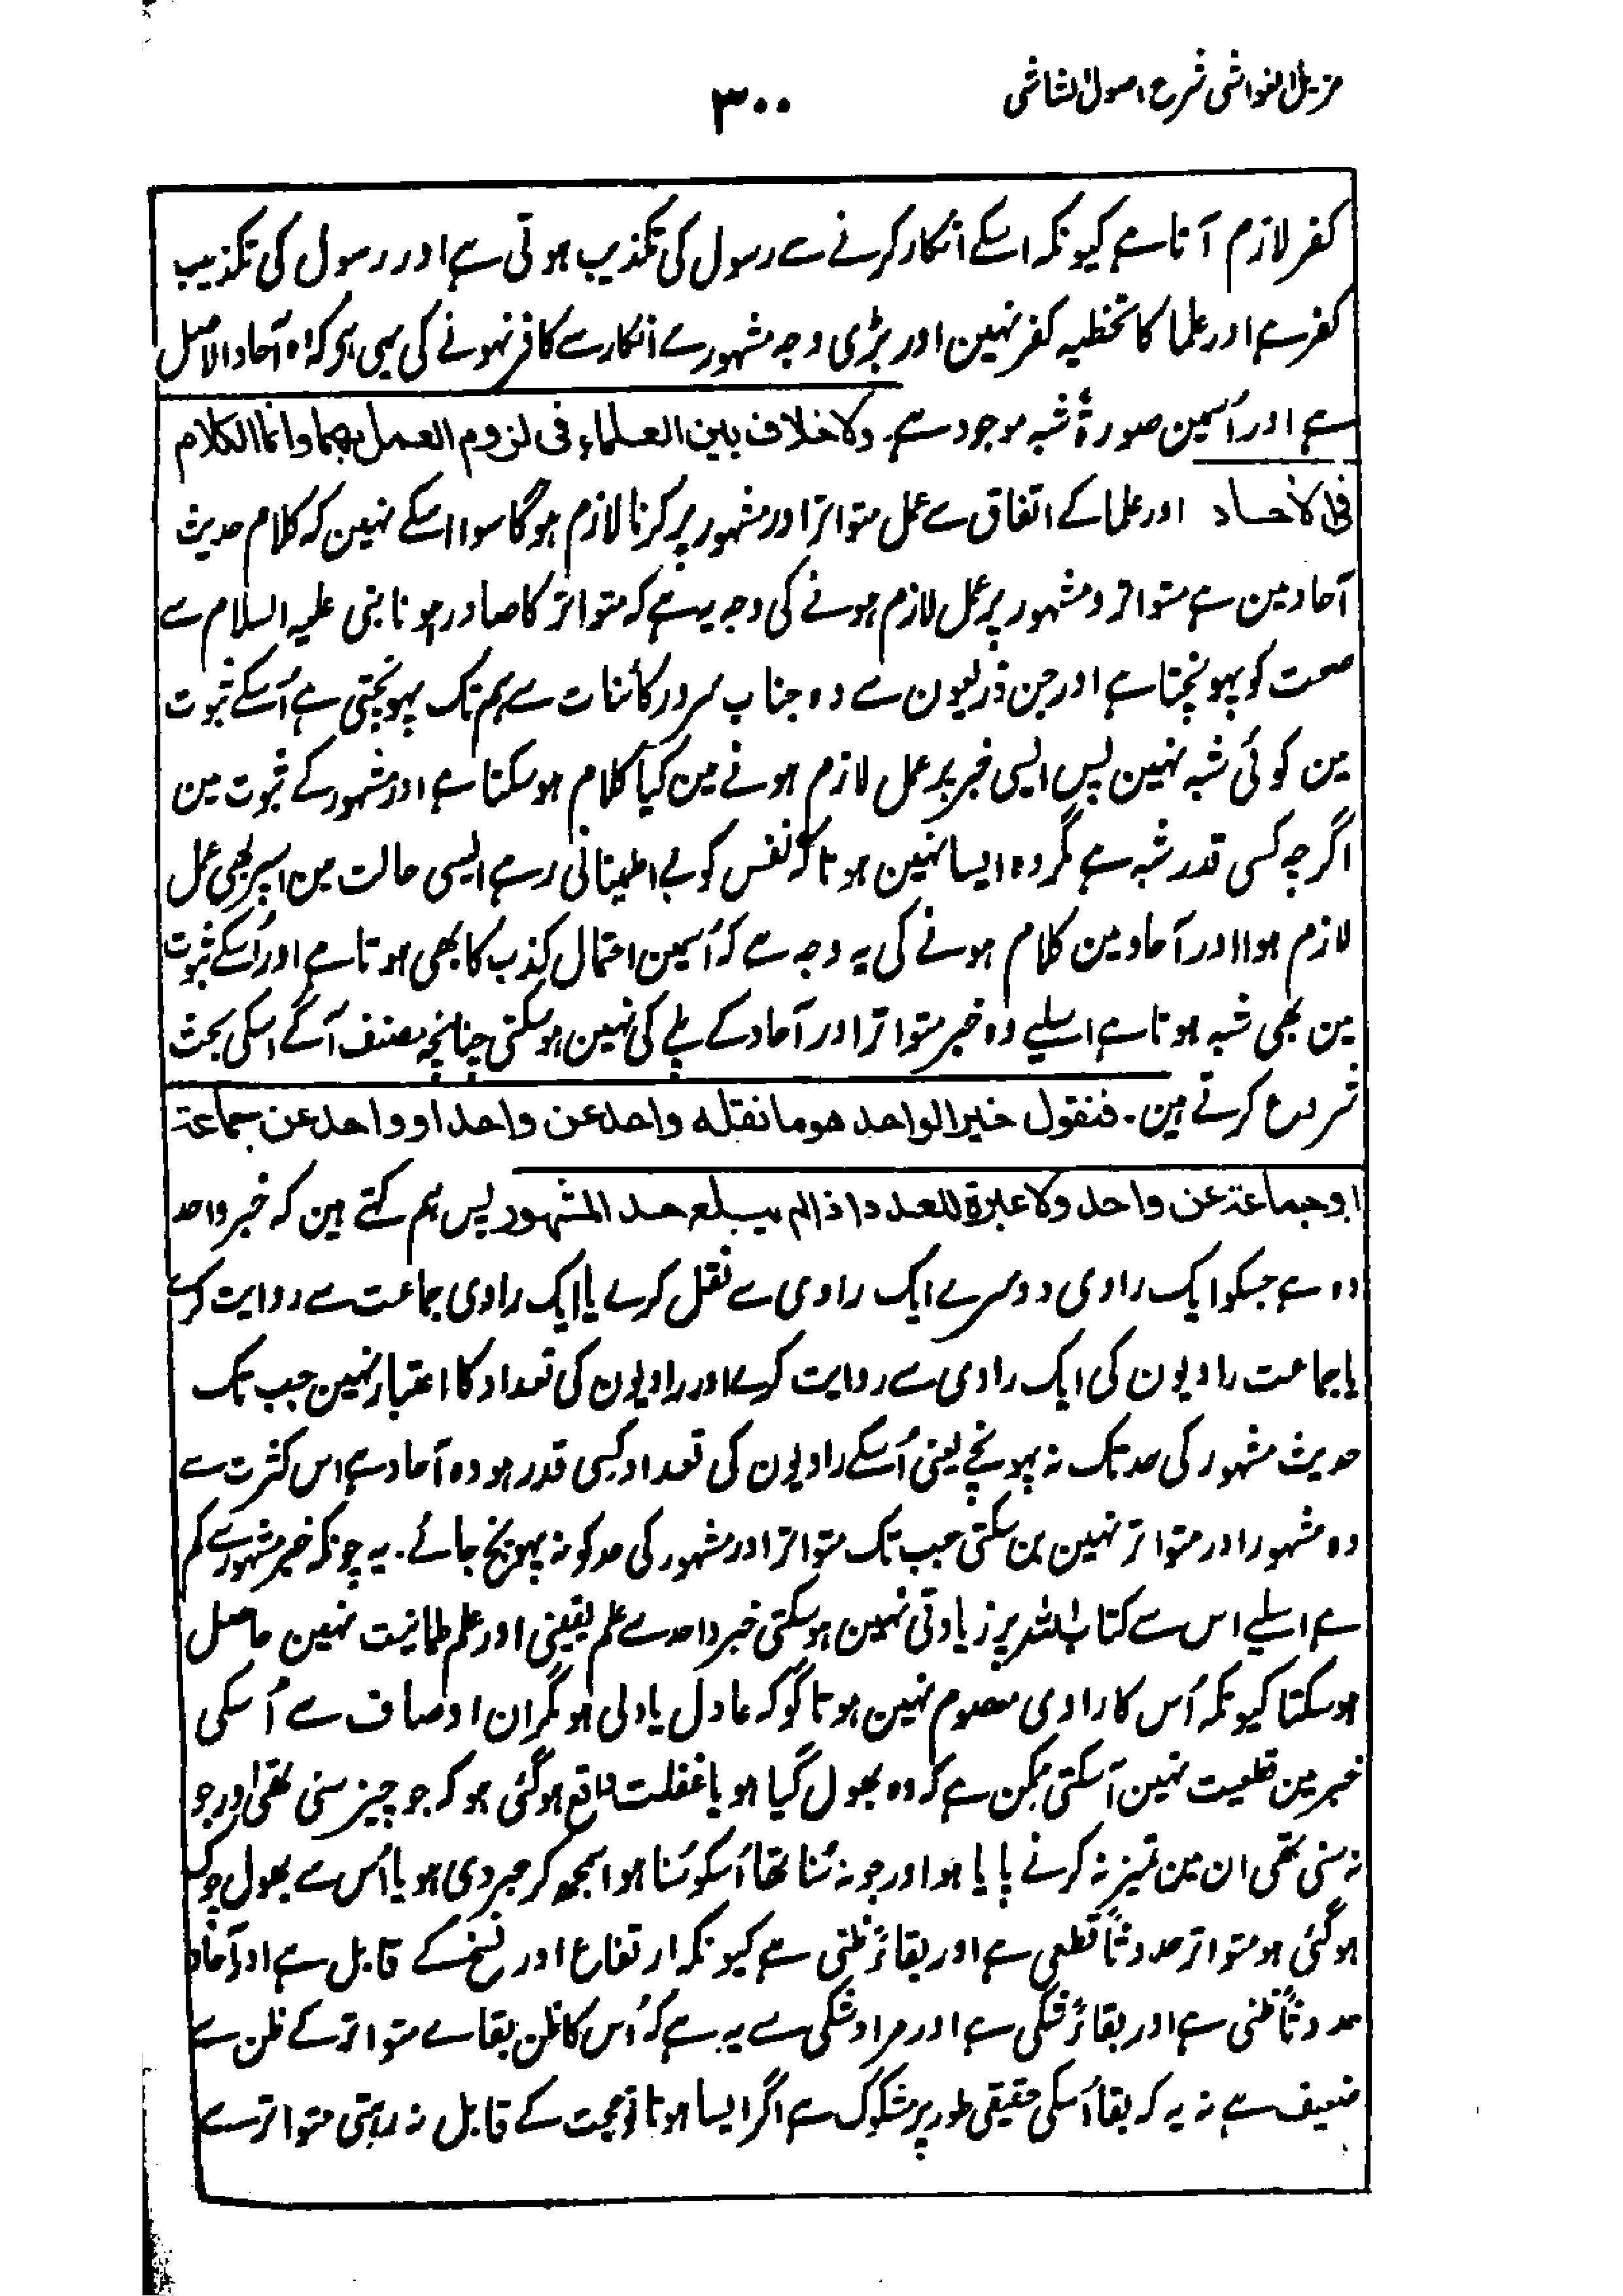 مزیل الغواشی شرح اصول الشاشی
۳۰۰
کفر لازم آتا ہے کیونکہ اسکے انکار کرنے سے رسول کی تکذیب ہوتی ہے اور رسول کی تکذیب
کفر ہے اور علما کا تخطیہ کفر نہین اور بڑی وجہ مشہور سے انکار سے کافر نہونے کی یہی ہی کہ وہ آحاد الاصل
ہے اور اُسمین صورۃً شبہ موجود ہے۔ ولا خلاف بین العلماء فی لزوم العمل بهما وانما الکلام
فی الاحاد اور علما کے اتفاق سے عمل متواتر اور مشہور پر کرنا لازم ہوگا سوا اسکے نہین کہ کلام حدیث
آحاد مین ہے متواتر و مشہور پر عمل لازم ہونے کی وجہ یہ ہے کہ متواتر کا صادر ہونا نبی علیہ السلام سے
صحت کو پہونچتا ہے اور جن ذریعون سے وہ جناب سرور کائنات سے ہم تک پہونچتی ہے اُسکے ثبوت
مین کوئی شبہ نہین پس ایسی خبر پر عمل لازم ہونے مین کیا کلام ہو سکتا ہے اور مشہور کے ثبوت مین
اگرچہ کسی قدر شبہ ہے مگر وہ ایسا نہین ہوتا کہ نفس کو بے اطمینانی رہے ایسی حالت مین اسپر بھی عمل
لازم ہوا اور آحاد مین کلام ہونے کی یہ وجہ ہے کہ اُسمین احتمال کذب کا بھی ہوتا ہے اور اُسکے ثبوت
مین بھی شبہ ہوتا ہے اسلیے وہ خبر متواتر اور آحاد کے پلے کی نہین ہو سکتی چنانچہ مصنف آگے اسکی بحث
شروع کرتے ہین۔ فنقول خبر الواحد هو ما نقله واحد عن واحد او واحد عن جماعة
او جماعة عن واحد ولا عبرة للعدد اذا لم یبلغ حد المشهور پس ہم کہتے ہین کہ خبر واحد
وہ ہے جسکو ایک راوی دوسرے ایک راوی سے نقل کرے یا ایک راوی جماعت سے روایت کرے
یا جماعت راویون کی ایک راوی سے روایت کرے اور راویون کی تعداد کا اعتبار نہین جب تک
حدیث مشہور کی حد تک نہ پہونچے یعنی اُسکے راویون کی تعداد کسی قدر ہو وہ آحاد ہے اس کثرت سے
وہ مشہور اور متواتر نہین بن سکتی جب تک متواتر اور مشہور کی حد کو نہ پہونچ جائے۔ یہ چونکہ خبر مشہور سے کم
ہے اسلیے اس سے کتاب اللہ پر زیادتی نہین ہو سکتی خبر واحد سے علم یقینی اور علم طمانیت نہین حاصل
ہو سکتا کیونکہ اُس کا راوی معصوم نہین ہوتا گو کہ عادل یا ولی ہو مگر ان اوصاف سے اُسکی
خبر مین قطعیت نہین آسکتی ممکن ہے کہ وہ بھول گیا ہو یا غفلت واقع ہوگئی ہو کہ جو چیز سنی تھی اور جو
نہ سنی تھی ان مین تمیز نہ کرنے پایا ہو اور جو نہ سُنا تھا اُسکو سُنا ہوا سمجھ کر خبر دی ہو یا اُس سے بھول چوک
ہوگئی ہو متواتر حدوثاً قطعی ہے اور بقاءً ظنی ہے کیونکہ ارتفاع اور نسخ کے قابل ہے اور آحاد
حدوثاً ظنی ہے اور بقاءً شکی ہے اور مراد شکی سے یہ ہے کہ اُس کا ظن بقاے متواتر کے ظن سے
ضعیف ہے نہ یہ کہ بقا اُسکی حقیقی طور پر مشکوک ہے اگر ایسا ہوتا تو حجت کے قابل نہ رہتی متواتر سے